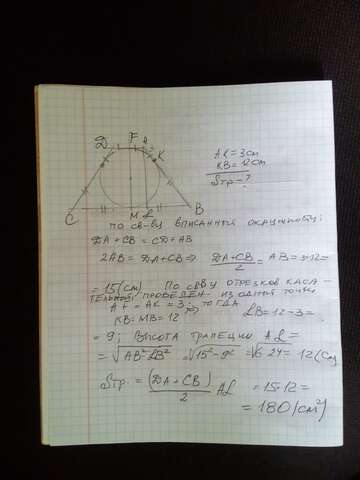 D F A
K
C M L B
AK = 3 см
KB = 12 см
Sтр - ?
по св-ву вписанной окружности:
DA + CB = CD + AB
2AB = DA + CB => DA + CB / 2 = AB = 3 + 12 =
= 15 (см) По св-ву отрезков каса-
тельных, провед. из одной точки
AF = AK = 3; тогда
KB = MB = 12 LB = 12 - 3 =
= 9; Высота трапеции AL =
= √AB² - LB² = √15² - 9² = √6 · 24 = 12 (см)
Sтр. = (DA + CB) / 2 AL = 15 · 12 =
= 180 (см²)